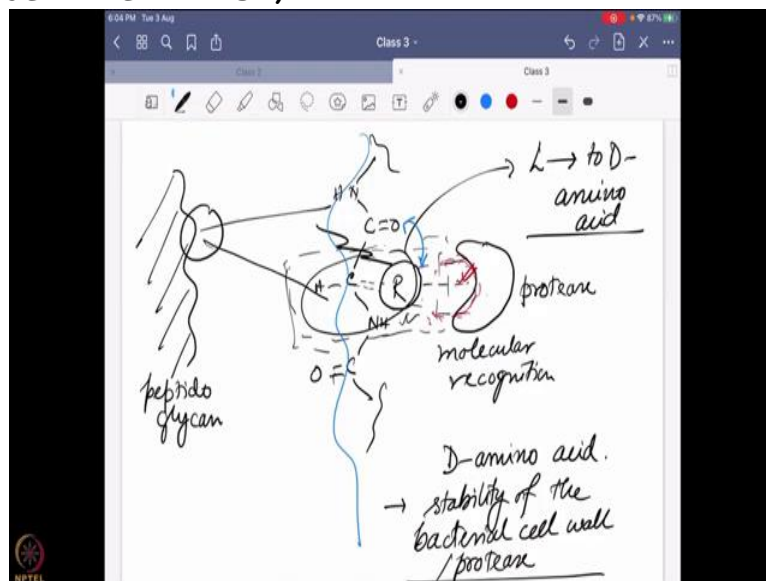 6:04 PM Tue 3 Aug
87%
Class 3
Class 2
Class 3
T
H N
C=O
H-C
R
NH
O=C
L → to D-
amino
acid
protease
molecular
recognition
peptido
glycan
D-amino acid.
→ stability of the
bacterial cell wall
/ protease
NPTEL